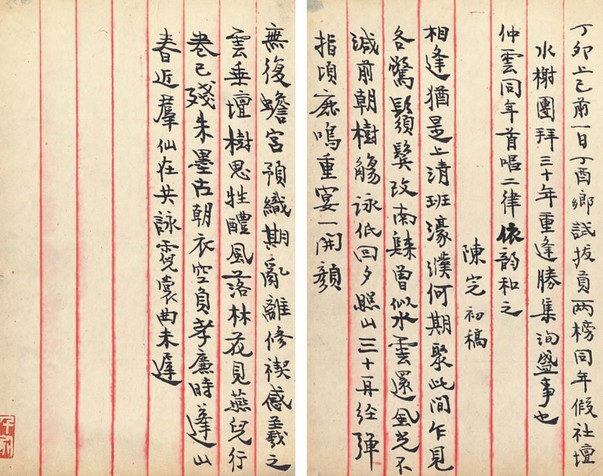 丁卯上巳前一日丁酉鄉試拔貢兩榜同年假社壇
水榭團拜三十年重逢勝集洵盛事也
仲雲同年首唱二律依韵和之
陳宧初稿
相逢猶是上清班濠濮何期聚此間乍見
各驚鬚鬢改南曾似水雲還風光不
減前朝樹觴詠低回夕照山三十再經彈
指頃鹿鳴重宴一開顏
無復蟾宮預織期亂離修禊感羲之
雲垂壇樹思牲醴風落林花見燕兒行
卷已殘朱墨古朝衣空負孝廉時蓬山
春近羣仙在共詠霓裳曲未遲